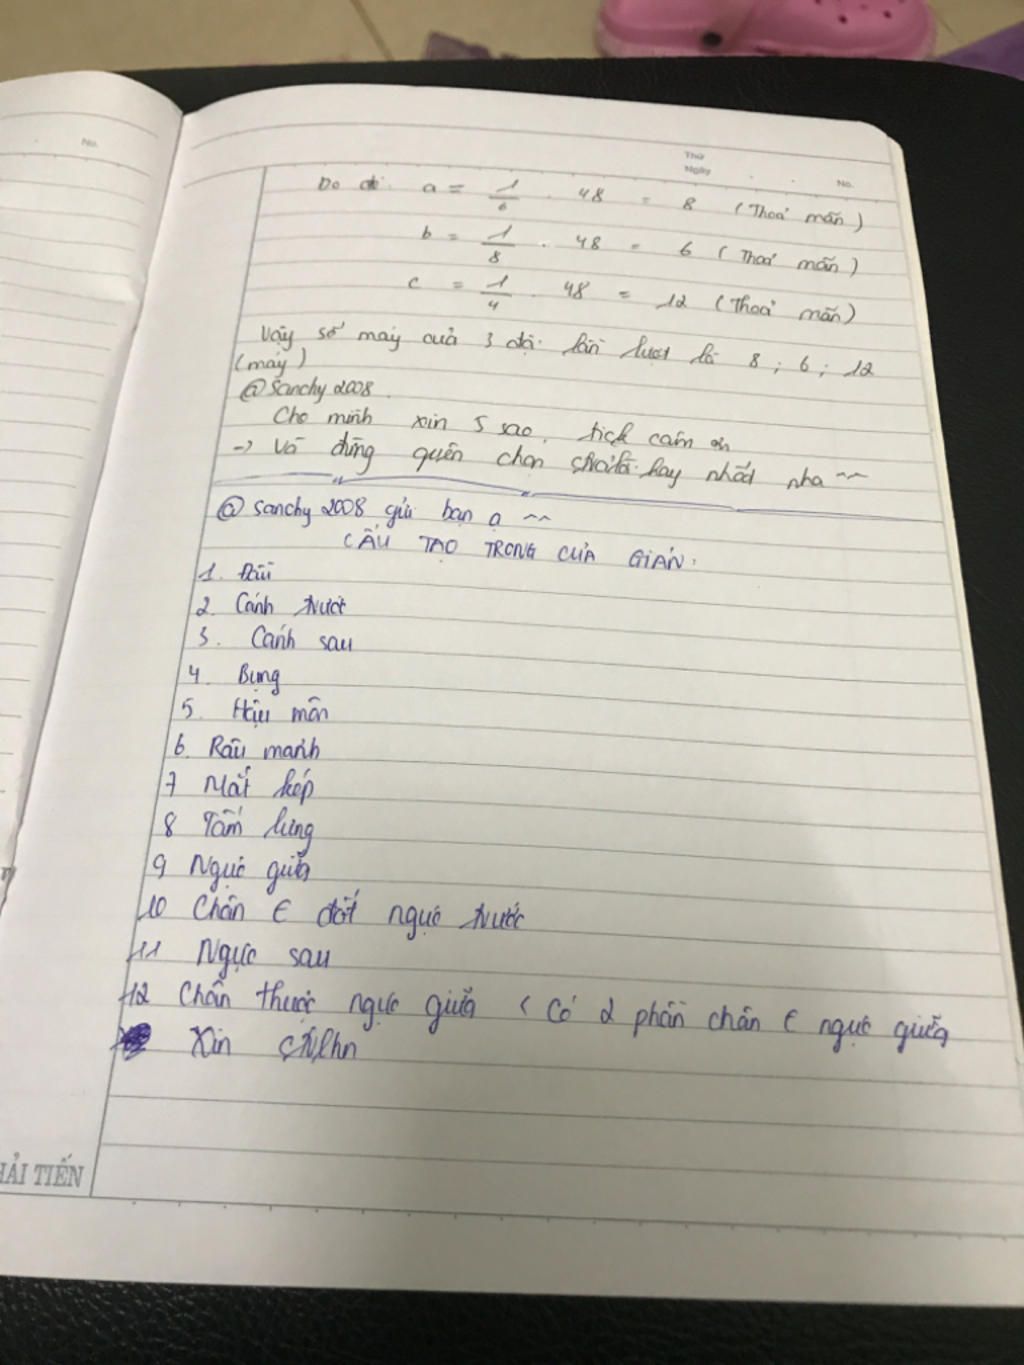 No.
Thứ
Ngày
No.
Do đó: a = 1/6 . 48 = 8 (Thoả mãn)
b = 1/8 . 48 = 6 (Thoả mãn)
c = 1/4 . 48 = 12 (Thoả mãn)
Vậy số máy của 3 đội lần lượt là 8 ; 6 ; 12
(máy)
@Sanchy2008.
Cho mình xin 5 sao, tick cám ơn
-> Và đừng quên chọn ctrlhn hay nhất nha ~~
@ Sanchy2008 gửi bạn ạ ~~
CẤU TẠO TRONG CỦA GIÁN:
1. Đầu
2. Cánh trước
3. Cánh sau
4. Bụng
5. Hậu môn
6. Râu mảnh
7 Mắt kép
8 Tấm lưng
9 Ngực giữa
10 Chân € đốt ngực trước
11 Ngực sau
12 Chân thuộc ngực giữa < Có 2 phần chân € ngực giữa
Xin ctrlhn
HẢI TIẾN